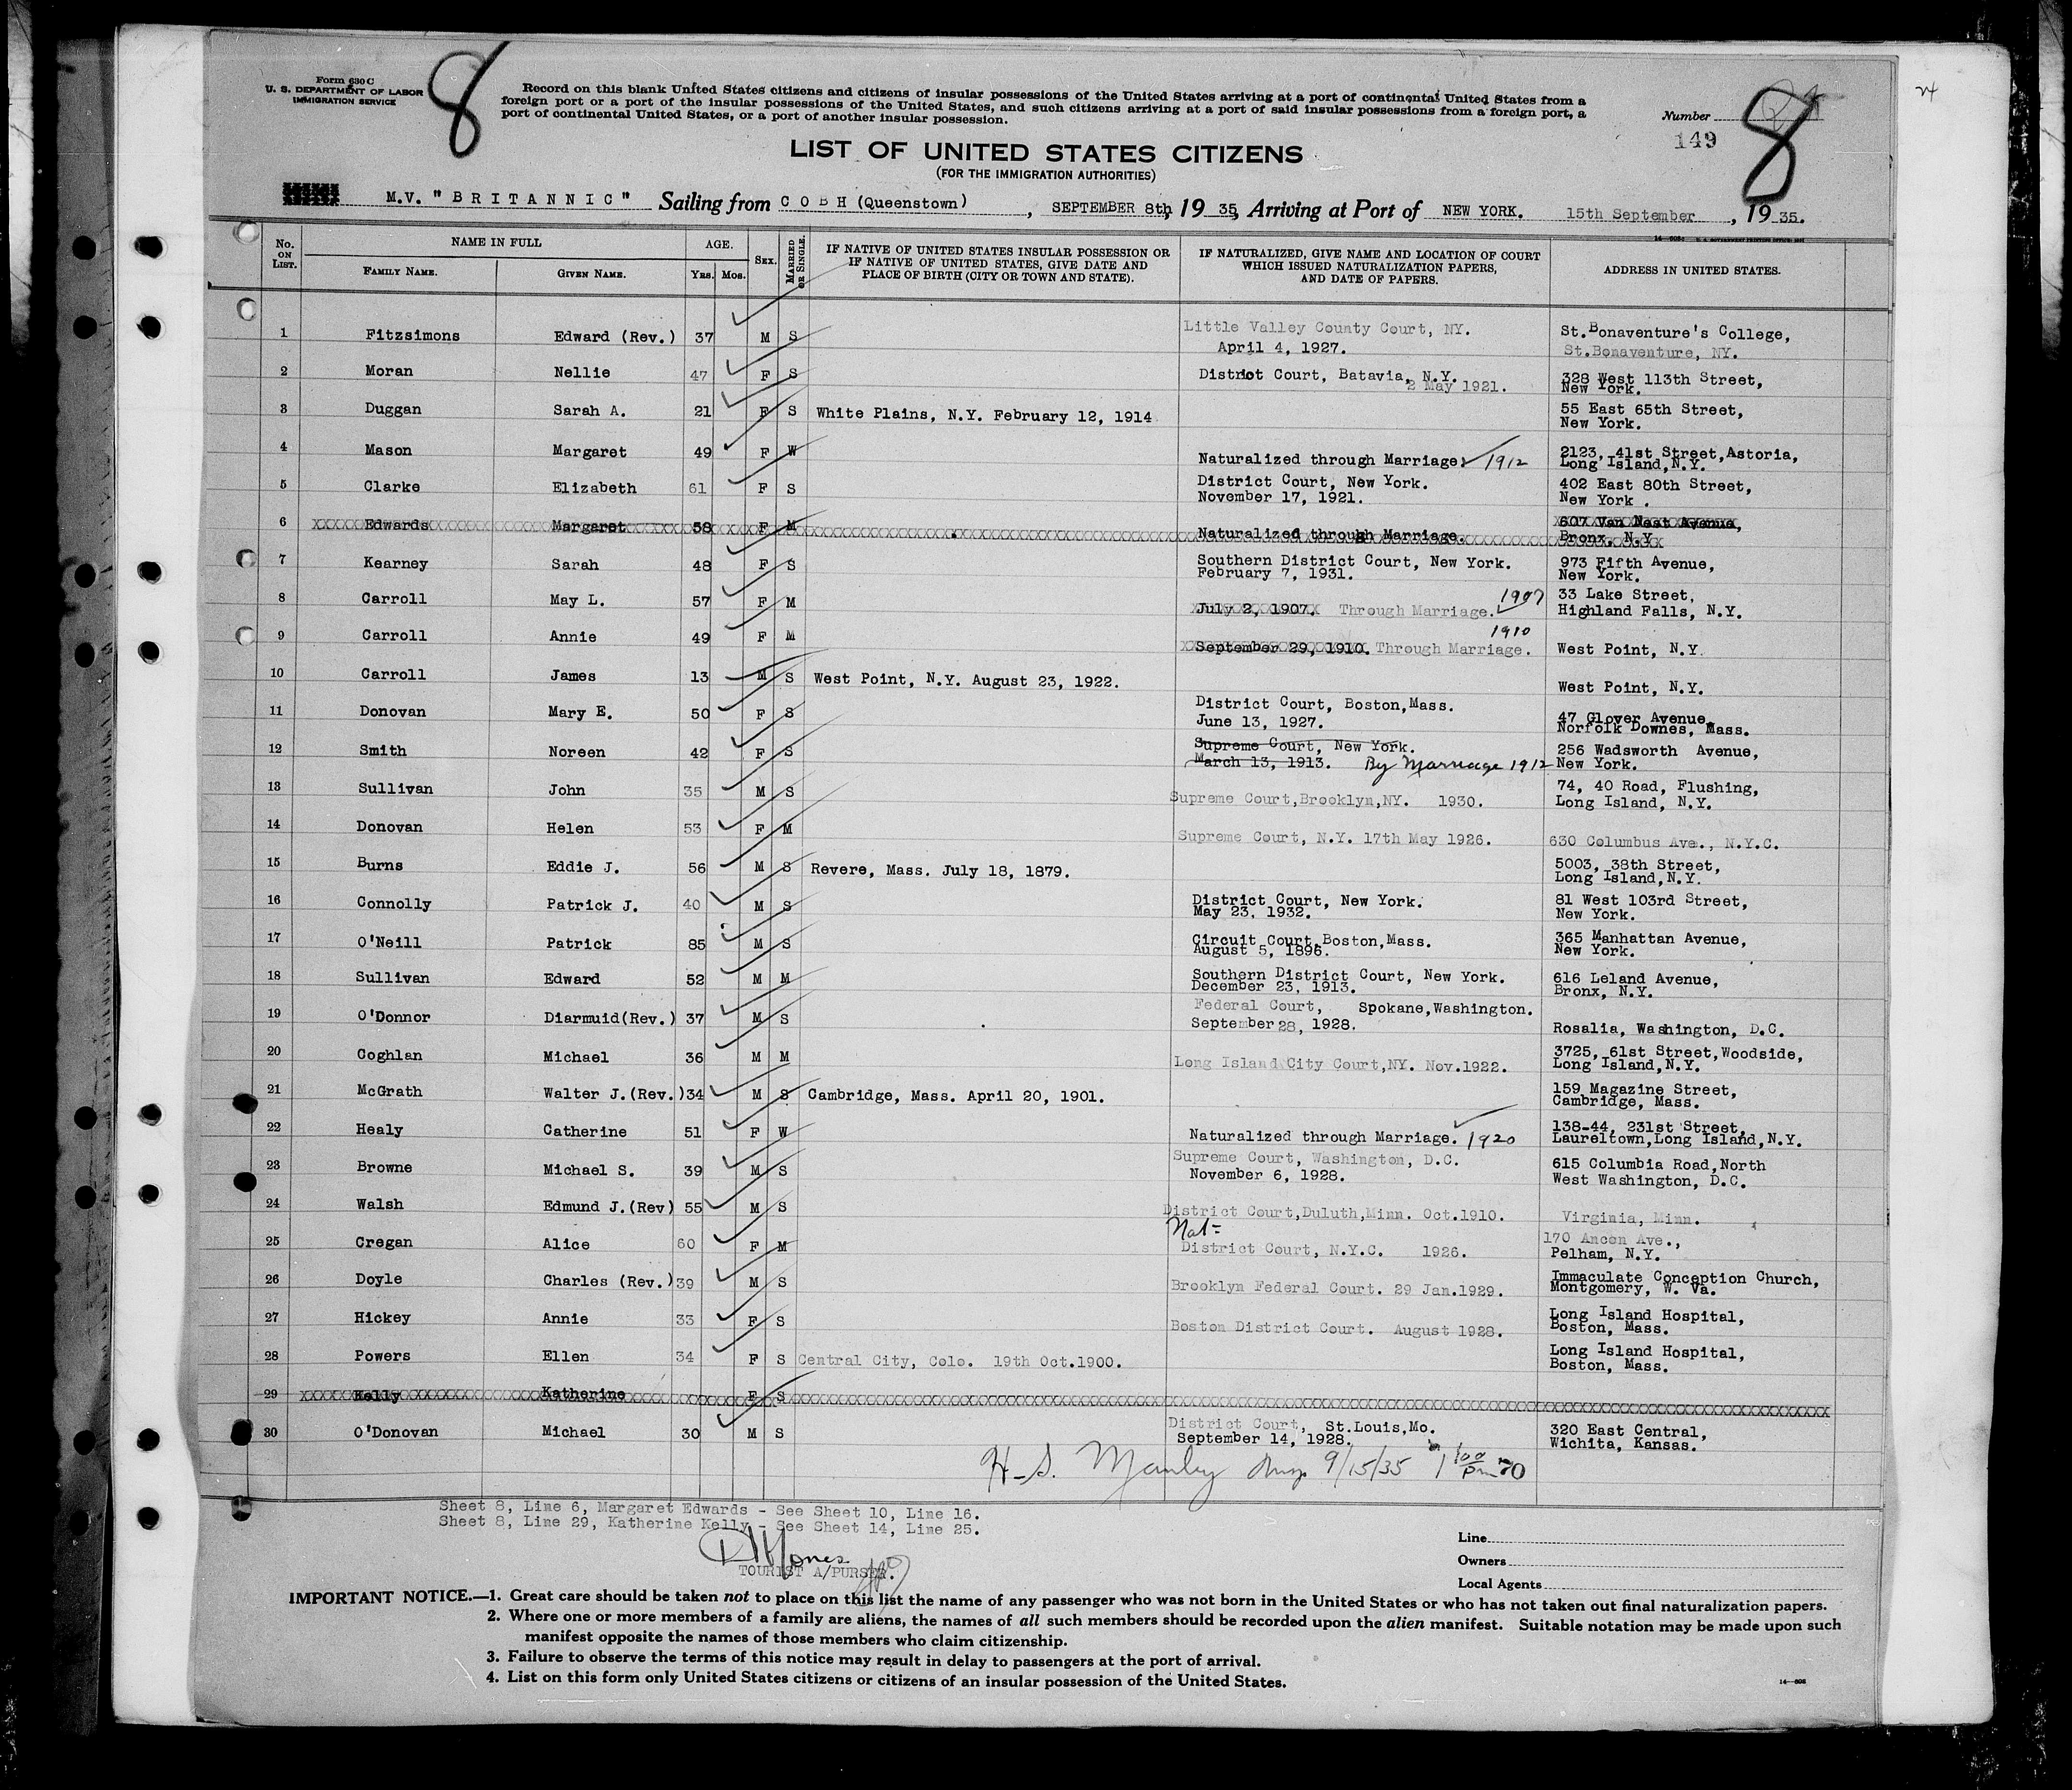 Form 630 C
U. S. DEPARTMENT OF LABOR
IMMIGRATION SERVICE
8
Record on this blank United States citizens and citizens of insular possessions of the United States arriving at a port of continental United States from a
foreign port or a port of the insular possessions of the United States, and such citizens arriving at a port of said insular possessions from a foreign port, a
port of continental United States, or a port of another insular possession.
Number
149
8
LIST OF UNITED STATES CITIZENS
(FOR THE IMMIGRATION AUTHORITIES)
M.V. "BRITANNIC" Sailing from COBH (Queenstown), SEPTEMBER 8th, 1935, Arriving at Port of NEW YORK. 15th September, 1935.
No. ON LIST. NAME IN FULL AGE. SEX. MARRIED OR SINGLE. IF NATIVE OF UNITED STATES INSULAR POSSESSION OR IF NATIVE OF UNITED STATES, GIVE DATE AND PLACE OF BIRTH (CITY OR TOWN AND STATE). IF NATURALIZED, GIVE NAME AND LOCATION OF COURT WHICH ISSUED NATURALIZATION PAPERS, AND DATE OF PAPERS. ADDRESS IN UNITED STATES.
FAMILY NAME. GIVEN NAME. YRS. MOS.
1 Fitzsimons Edward (Rev.) 37 M S Little Valley County Court, NY. April 4, 1927. St.Bonaventure's College, St.Bonaventure, NY.
2 Moran Nellie 47 F S District Court, Batavia, N.Y. 2 May 1921. 328 West 113th Street, New York.
3 Duggan Sarah A. 21 F S White Plains, N.Y. February 12, 1914 55 East 65th Street, New York.
4 Mason Margaret 49 F W Naturalized through Marriage. 1912 2123, 41st Street,Astoria, Long Island,N.Y.
5 Clarke Elizabeth 61 F S District Court, New York. November 17, 1921. 402 East 80th Street, New York .
6 Edwards Margaret 58 F M Naturalized through Marriage. 607 Van Nest Avenue, Bronx, N.Y
7 Kearney Sarah 48 F S Southern District Court, New York. February 7, 1931. 973 Fifth Avenue, New York.
8 Carroll May L. 57 F M July 2, 1907. Through Marriage. 1907 33 Lake Street, Highland Falls, N.Y.
9 Carroll Annie 49 F M September 29, 1910. Through Marriage. 1910 West Point, N.Y.
10 Carroll James 13 M S West Point, N.Y. August 23, 1922. West Point, N.Y.
11 Donovan Mary E. 50 F S District Court, Boston,Mass. June 13, 1927. 47 Glover Avenue, Norfolk Downes, Mass.
12 Smith Noreen 42 F S Supreme Court, New York. March 13, 1913. By Marriage 1912 256 Wadsworth Avenue, New York.
13 Sullivan John 35 M S Supreme Court,Brooklyn,NY. 1930. 74, 40 Road, Flushing, Long Island, N.Y.
14 Donovan Helen 53 F M Supreme Court, N.Y. 17th May 1926. 630 Columbus Ave., N.Y.C.
15 Burns Eddie J. 56 M S Revere, Mass. July 18, 1879. 5003, 38th Street, Long Island,N.Y.
16 Connolly Patrick J. 40 M S District Court, New York. May 23, 1932. 81 West 103rd Street, New York.
17 O'Neill Patrick 85 M S Circuit Court,Boston,Mass. August 5, 1896. 365 Manhattan Avenue, New York.
18 Sullivan Edward 52 M M Southern District Court, New York. December 23, 1913. 616 Leland Avenue, Bronx, N.Y.
19 O'Donnor Diarmuid(Rev.) 37 M S Federal Court, Spokane,Washington. September 28, 1928. Rosalia, Washington, D.C.
20 Coghlan Michael 36 M M Long Island City Court,NY. Nov.1922. 3725, 61st Street,Woodside, Long Island,N.Y.
21 McGrath Walter J.(Rev.) 34 M S Cambridge, Mass. April 20, 1901. 159 Magazine Street, Cambridge, Mass.
22 Healy Catherine 51 F W Naturalized through Marriage. 1920 138-44, 231st Street, Laureltown,Long Island,N.Y.
23 Browne Michael S. 39 M S Supreme Court, Washington, D.C. November 6, 1928. 615 Columbia Road,North West Washington, D.C.
24 Walsh Edmund J.(Rev) 55 M S District Court,Duluth,Minn. Oct.1910. Virginia, Minn.
25 Cregan Alice 60 F M Nat- District Court, N.Y.C. 1926. 170 Ancon Ave., Pelham, N.Y.
26 Doyle Charles (Rev.) 39 M S Brooklyn Federal Court. 29 Jan.1929. Immaculate Conception Church, Montgomery, W. Va.
27 Hickey Annie 33 F S Boston District Court. August 1928. Long Island Hospital, Boston, Mass.
28 Powers Ellen 34 F S Central City, Colo. 19th Oct.1900. Long Island Hospital, Boston, Mass.
29 Kelly Katherine F S
30 O'Donovan Michael 30 M S District Court, St.Louis,Mo. September 14, 1928. 320 East Central, Wichita, Kansas.
H-S. Manley Insp. 9/15/35 1 00 pm 70
Sheet 8, Line 6, Margaret Edwards - See Sheet 10, Line 16.
Sheet 8, Line 29, Katherine Kelly - See Sheet 14, Line 25.
TOURIST A/PURSER.
Line
Owners
Local Agents
IMPORTANT NOTICE.—1. Great care should be taken not to place on this list the name of any passenger who was not born in the United States or who has not taken out final naturalization papers.
2. Where one or more members of a family are aliens, the names of all such members should be recorded upon the alien manifest. Suitable notation may be made upon such
manifest opposite the names of those members who claim citizenship.
3. Failure to observe the terms of this notice may result in delay to passengers at the port of arrival.
4. List on this form only United States citizens or citizens of an insular possession of the United States.